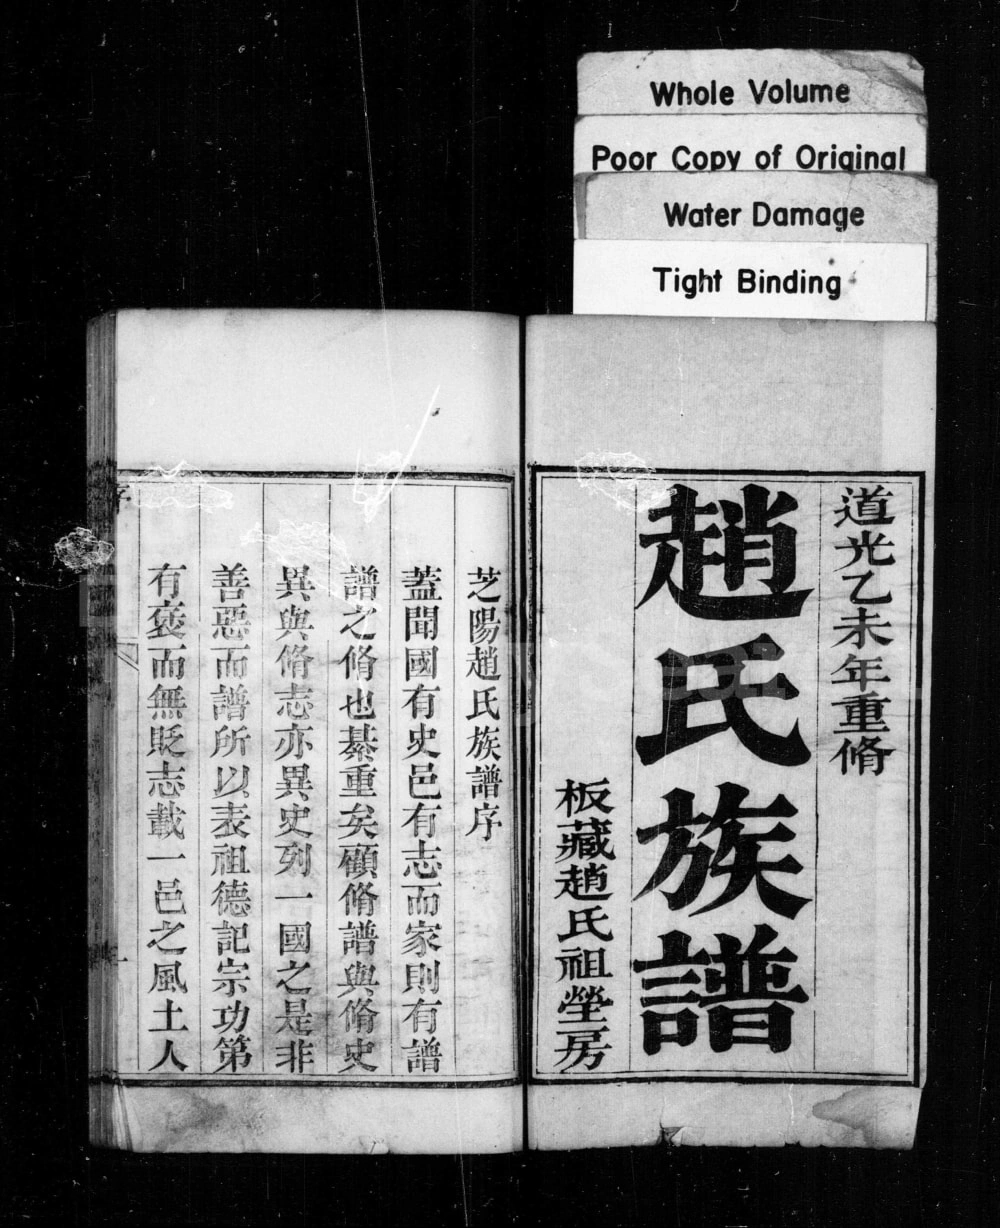 Whole Volume
Poor Copy of Original
Water Damage
Tight Binding
道光乙未年重脩
趙氏族譜
板藏趙氏祖塋房
芝陽趙氏族譜序
蓋聞國有史邑有志而家則有譜
譜之脩也綦重矣顧脩譜與脩史
異與脩志亦異史列一國之是非
善惡而譜所以表祖德記宗功第
有襃而無貶志載一邑之風土人
序
一